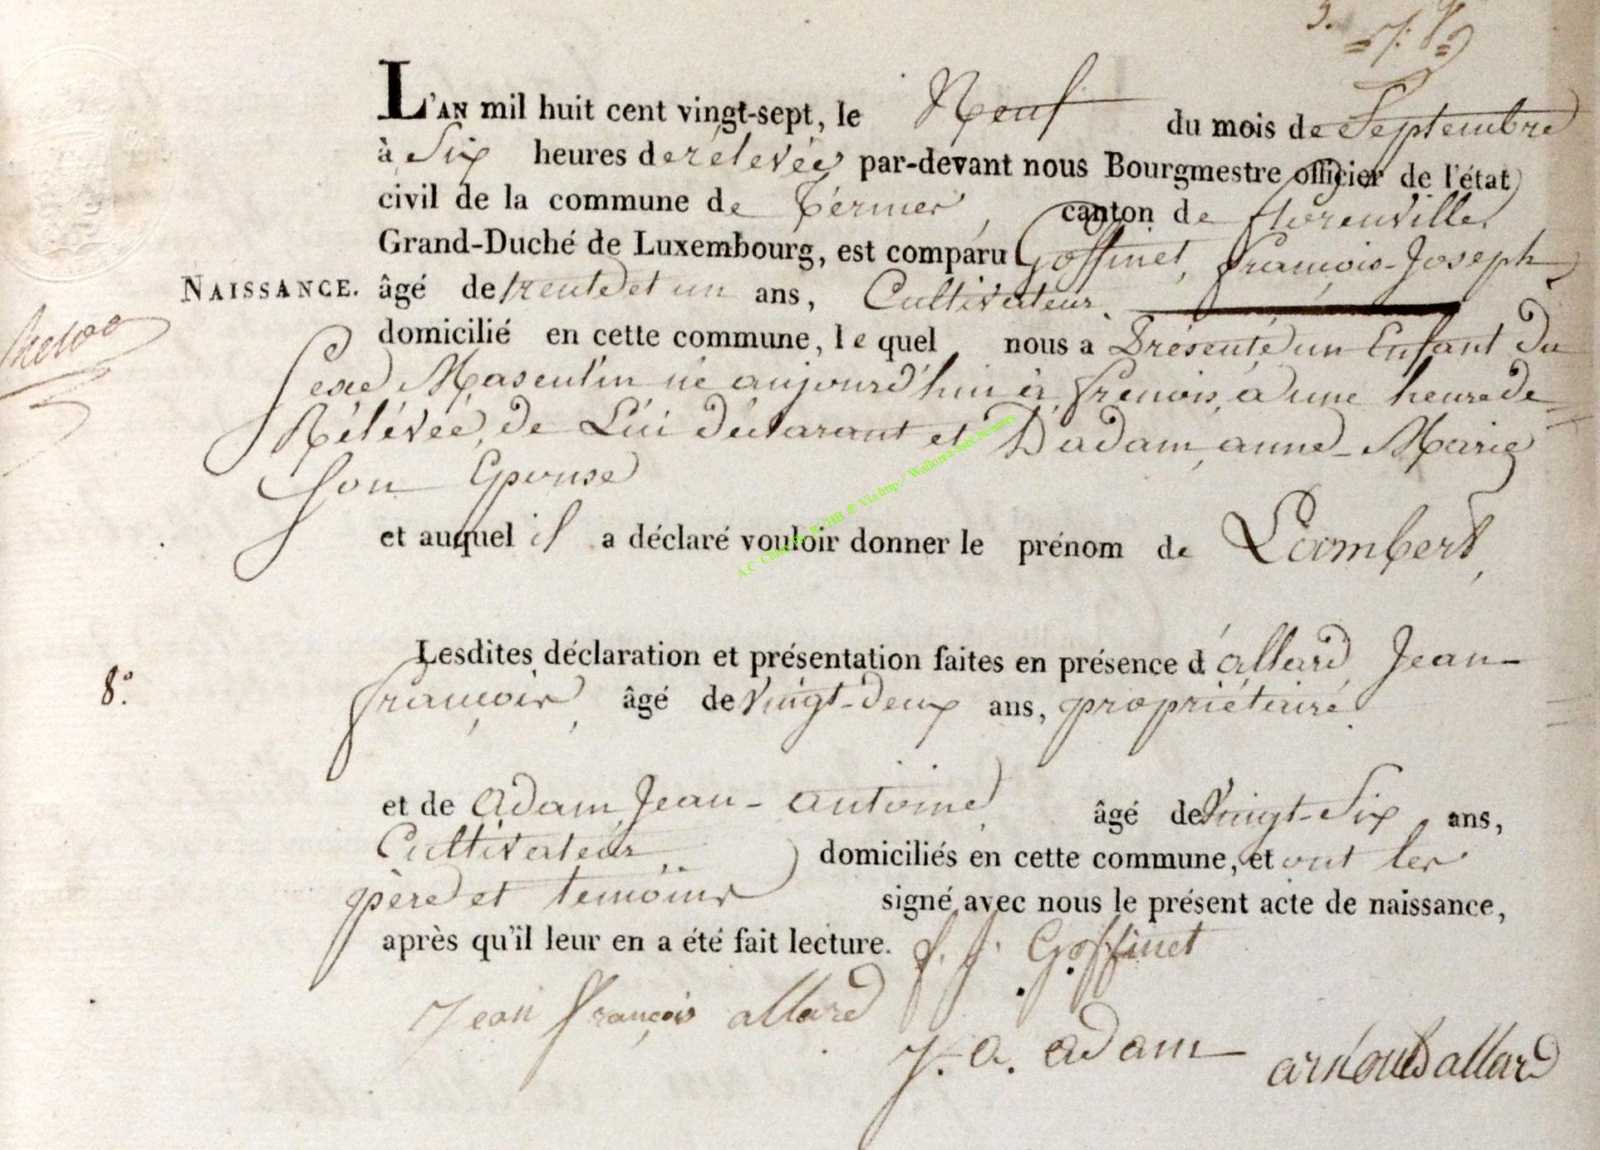 L'AN mil huit cent vingt-sept, le Neuf du mois de Septembre
à Six heures de rélévée par-devant nous Bourgmestre officier de l'état
civil de la commune de Termes, canton de florenville
Grand-Duché de Luxembourg, est comparu Goffinet, françois-Joseph
NAISSANCE. âgé de trente et un ans, Cultivateur
domicilié en cette commune, le quel nous a Présenté un Enfant du
Sexe Masculin né aujourd'hui à frenois, à une heure de
Rélévée, de Lui déclarant et D'adam, anne-Marie
Son Epouse
et auquel il a déclaré vouloir donner le prénom de Lambert,
Lesdites déclaration et présentation faites en présence d'allard, Jean-
8° françois, âgé de Vingt-deux ans, propriétaire
et de adam, Jean-antoine, âgé de Vingt-Six ans,
Cultivateur, domiciliés en cette commune, et ont les
père et temoins signé avec nous le présent acte de naissance,
après qu'il leur en a été fait lecture. f. j. Goffinet
Jean françois allard
J. a. adam arnould allard